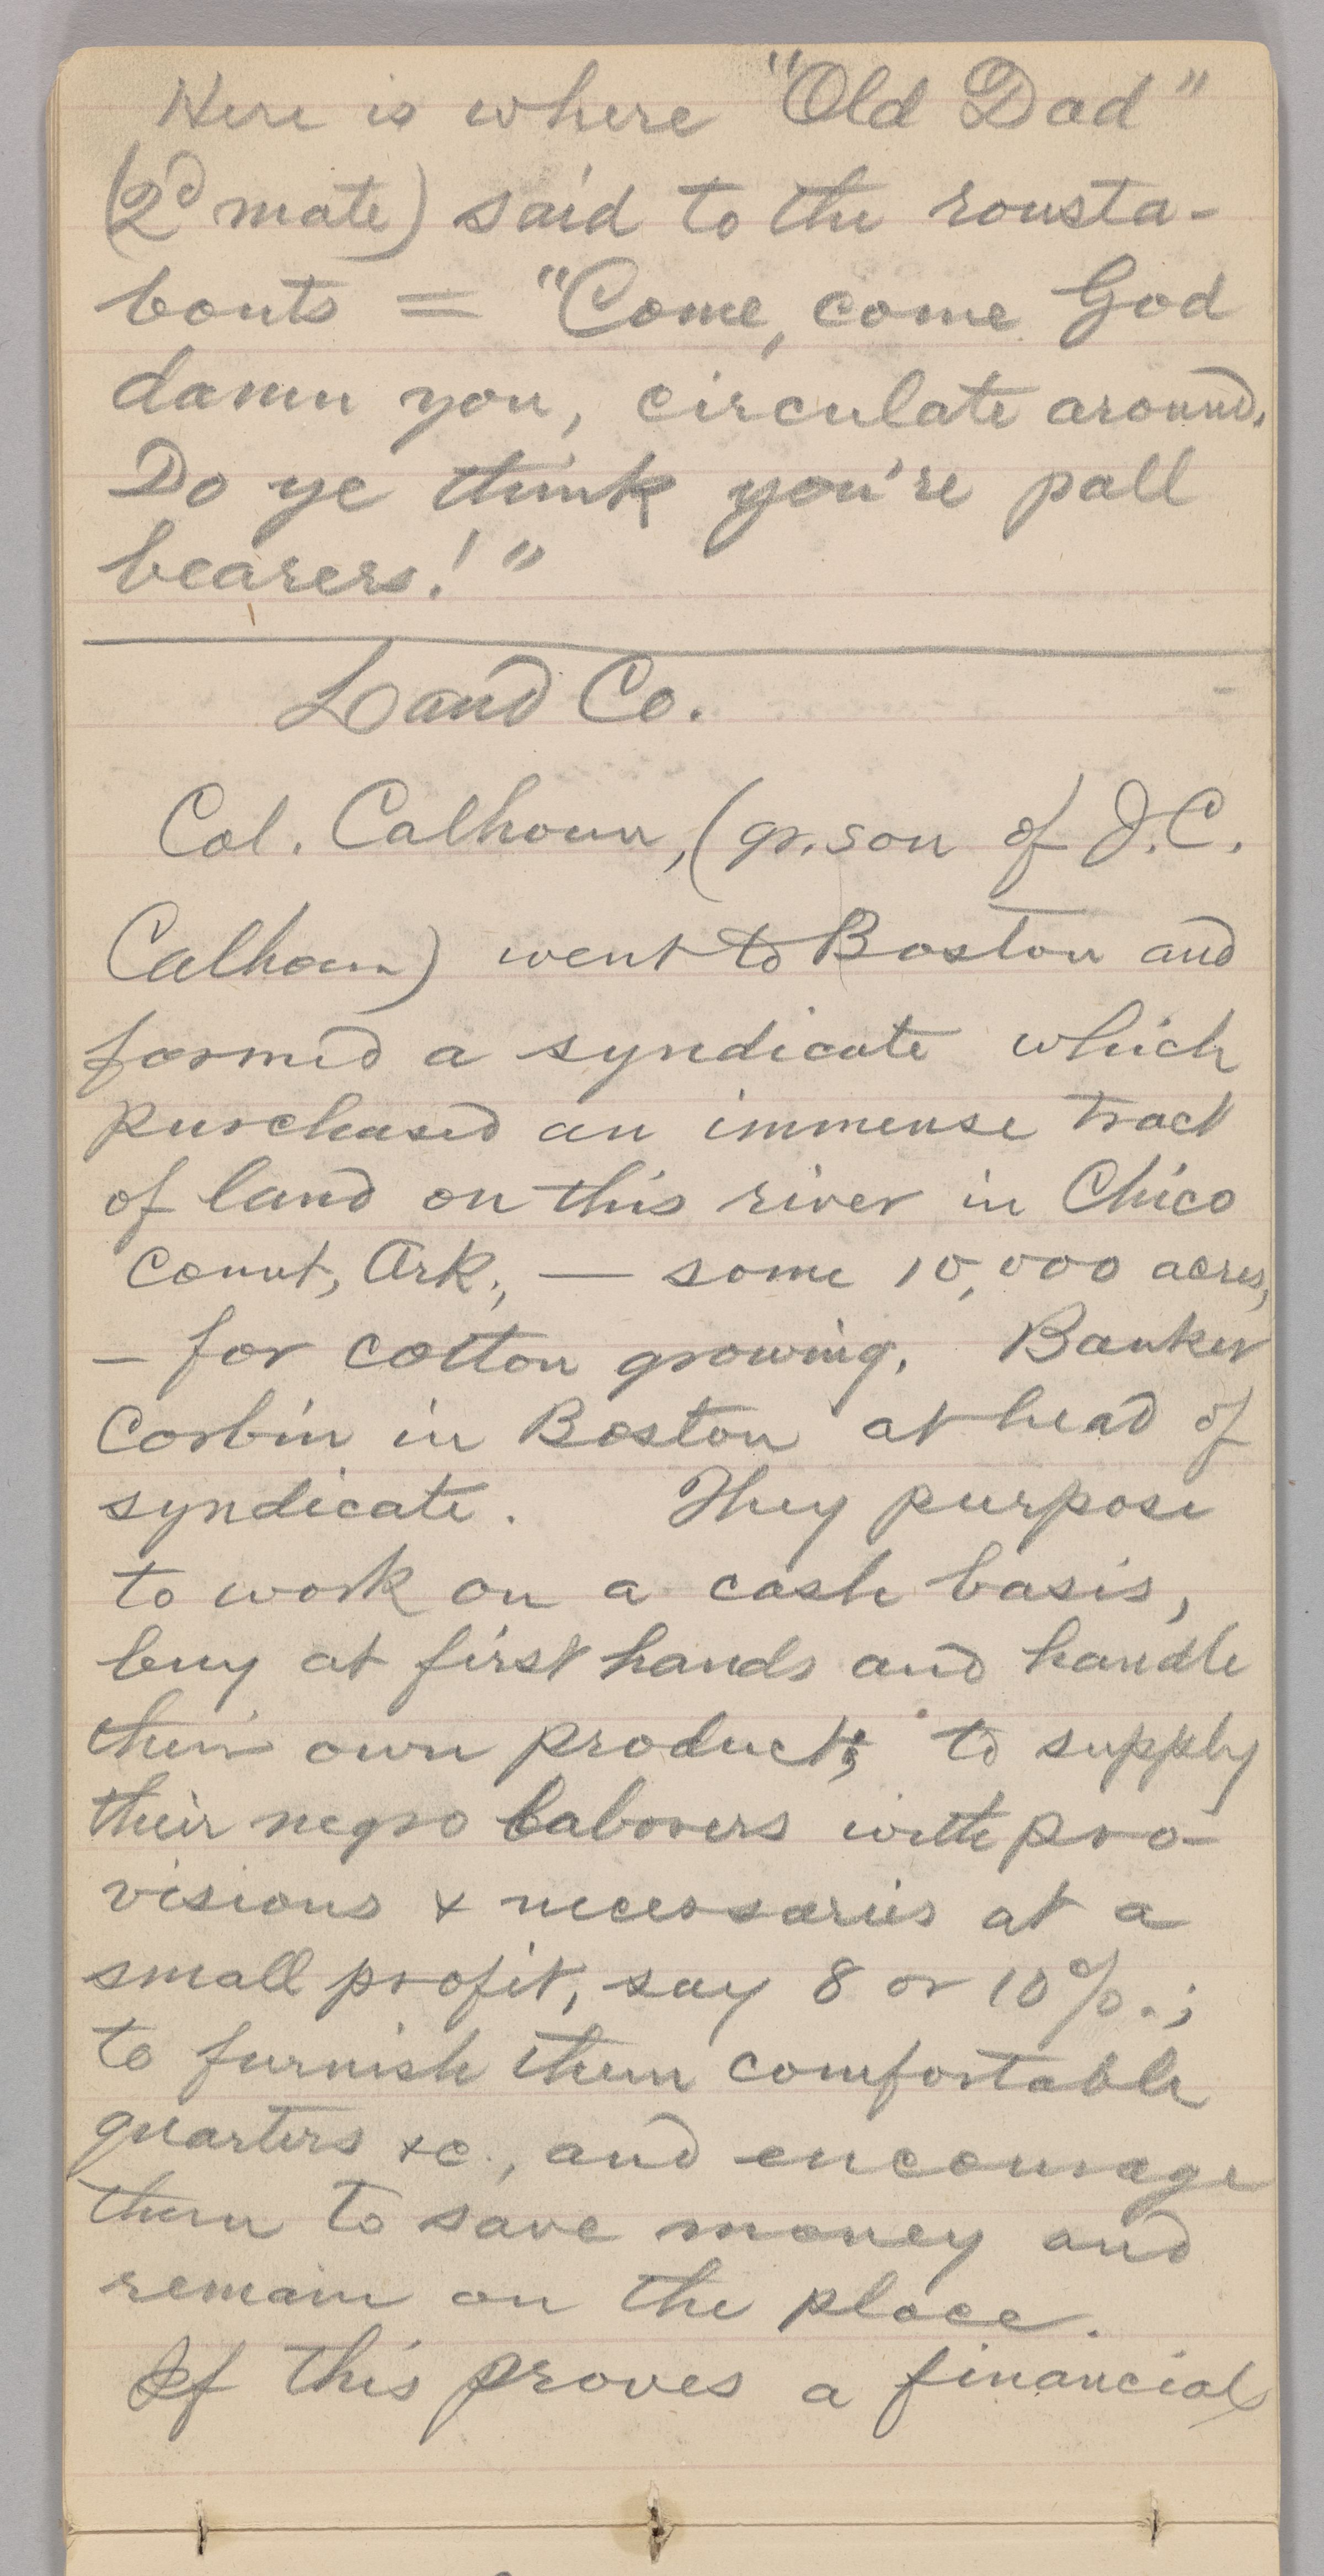 Here is where "Old Dad"
(2d mate) said to the rousta-
bouts = "Come, come God
damn you, circulate around.
Do ye think you're pall
bearers!"
Land Co.
Col. Calhoun, (gr.son of J.C.
Calhoun) went to Boston and
formed a syndicate which
purchased an immense tract
of land on this river in Chico
count, Ark., — some 10,000 acres,
— for cotton growing. Banker
Corbin in Boston at head of
syndicate. They purpose
to work on a cash basis,
buy at first hands and handle
their own product; to supply
their negro laborers with pro-
visions & necessaries at a
small profit, say 8 or 10%.;
to furnish them comfortable
quarters &c., and encourage
them to save money and
remain on the place.
If this proves a financial